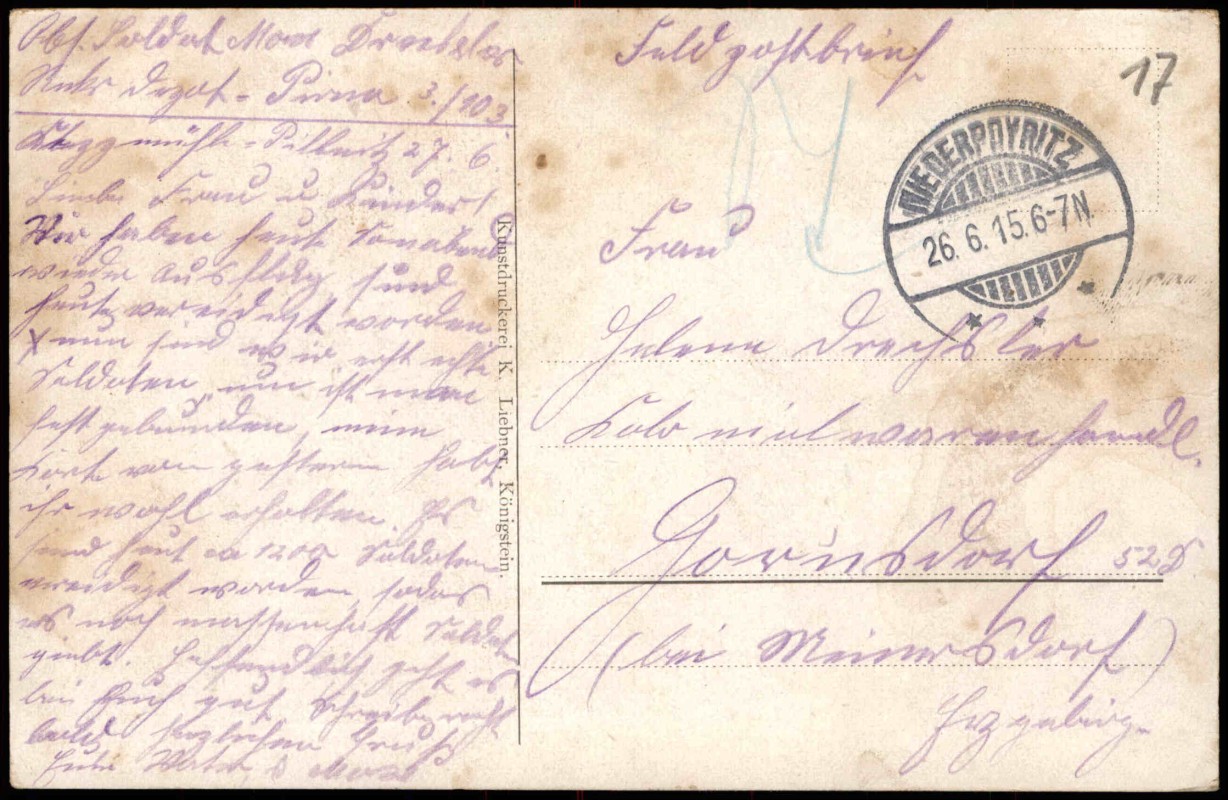 Abs. Soldat Max Drechsler
Rekr. Depot - Pirna 3./103.
Pillnitz 27. 6.
Liebe Frau u Kinder!
Wir haben heute Sonnabend
wieder Ausflug sind
heute vereidigt worden
nun sind wir erst echte
Soldaten, nun ist man
fest gebunden, meine
Karte von gestern habt
ihr wohl erhalten. Es
sind heut ca 1200 Soldaten
vereidigt worden, sodas
es noch massenhaft Soldaten
giebt. Hoffendlich geht es
bei Euch gut Schreibt recht
bald herzlichen Gruß
Euer Vater Max
Kunstdruckerei K. Liebner, Königstein.
Feldpostbrief
17
NIEDERPOYRITZ
26. 6. 15. 6-7N.
Frau
Helene Drechsler
Kolonialwarenhandl.
Gornsdorf 52D
(bei Meinersdorf)
Erzgebirge